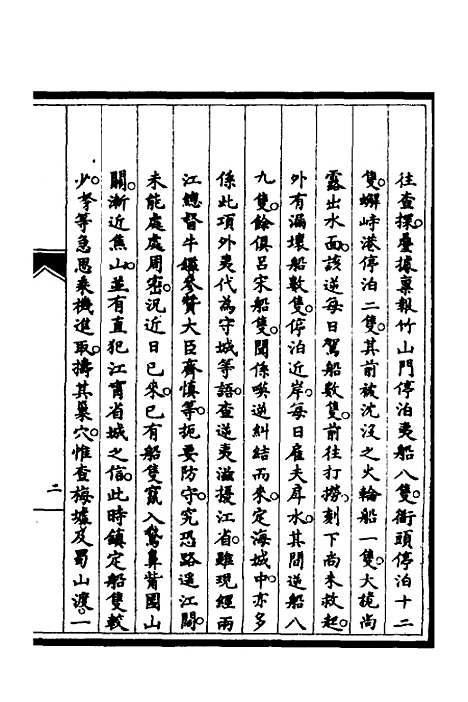 往查探。疊據稟報竹山門停泊夷船八隻。衜頭停泊十二
隻。蠏峙港停泊二隻。其前被沈沒之火輪船一隻。大桅尚
露出水面。該逆每日駕船數隻。前往打撈。刻下尚未救起。
外有漏壞船數隻。停泊近岸。每日雇夫戽水。其間逆船八
九隻。餘俱呂宋船隻。聞係㗆逆糾結而來。定海城中。亦多
係此項外夷代為守城等語。查逆夷滋擾江省。雖現經兩
江總督牛鑑參贊大臣齊慎等。扼要防守。究恐路遥江闊。
未能處處周密。況近日已來。已有船隻竄入鵞鼻背圌山
關。漸近焦山。並有直犯江甯省城之信。此時鎮定船隻較
少。李等急思乘機進取。擣其巢穴。惟查梅墟及蜀山渡。一
二